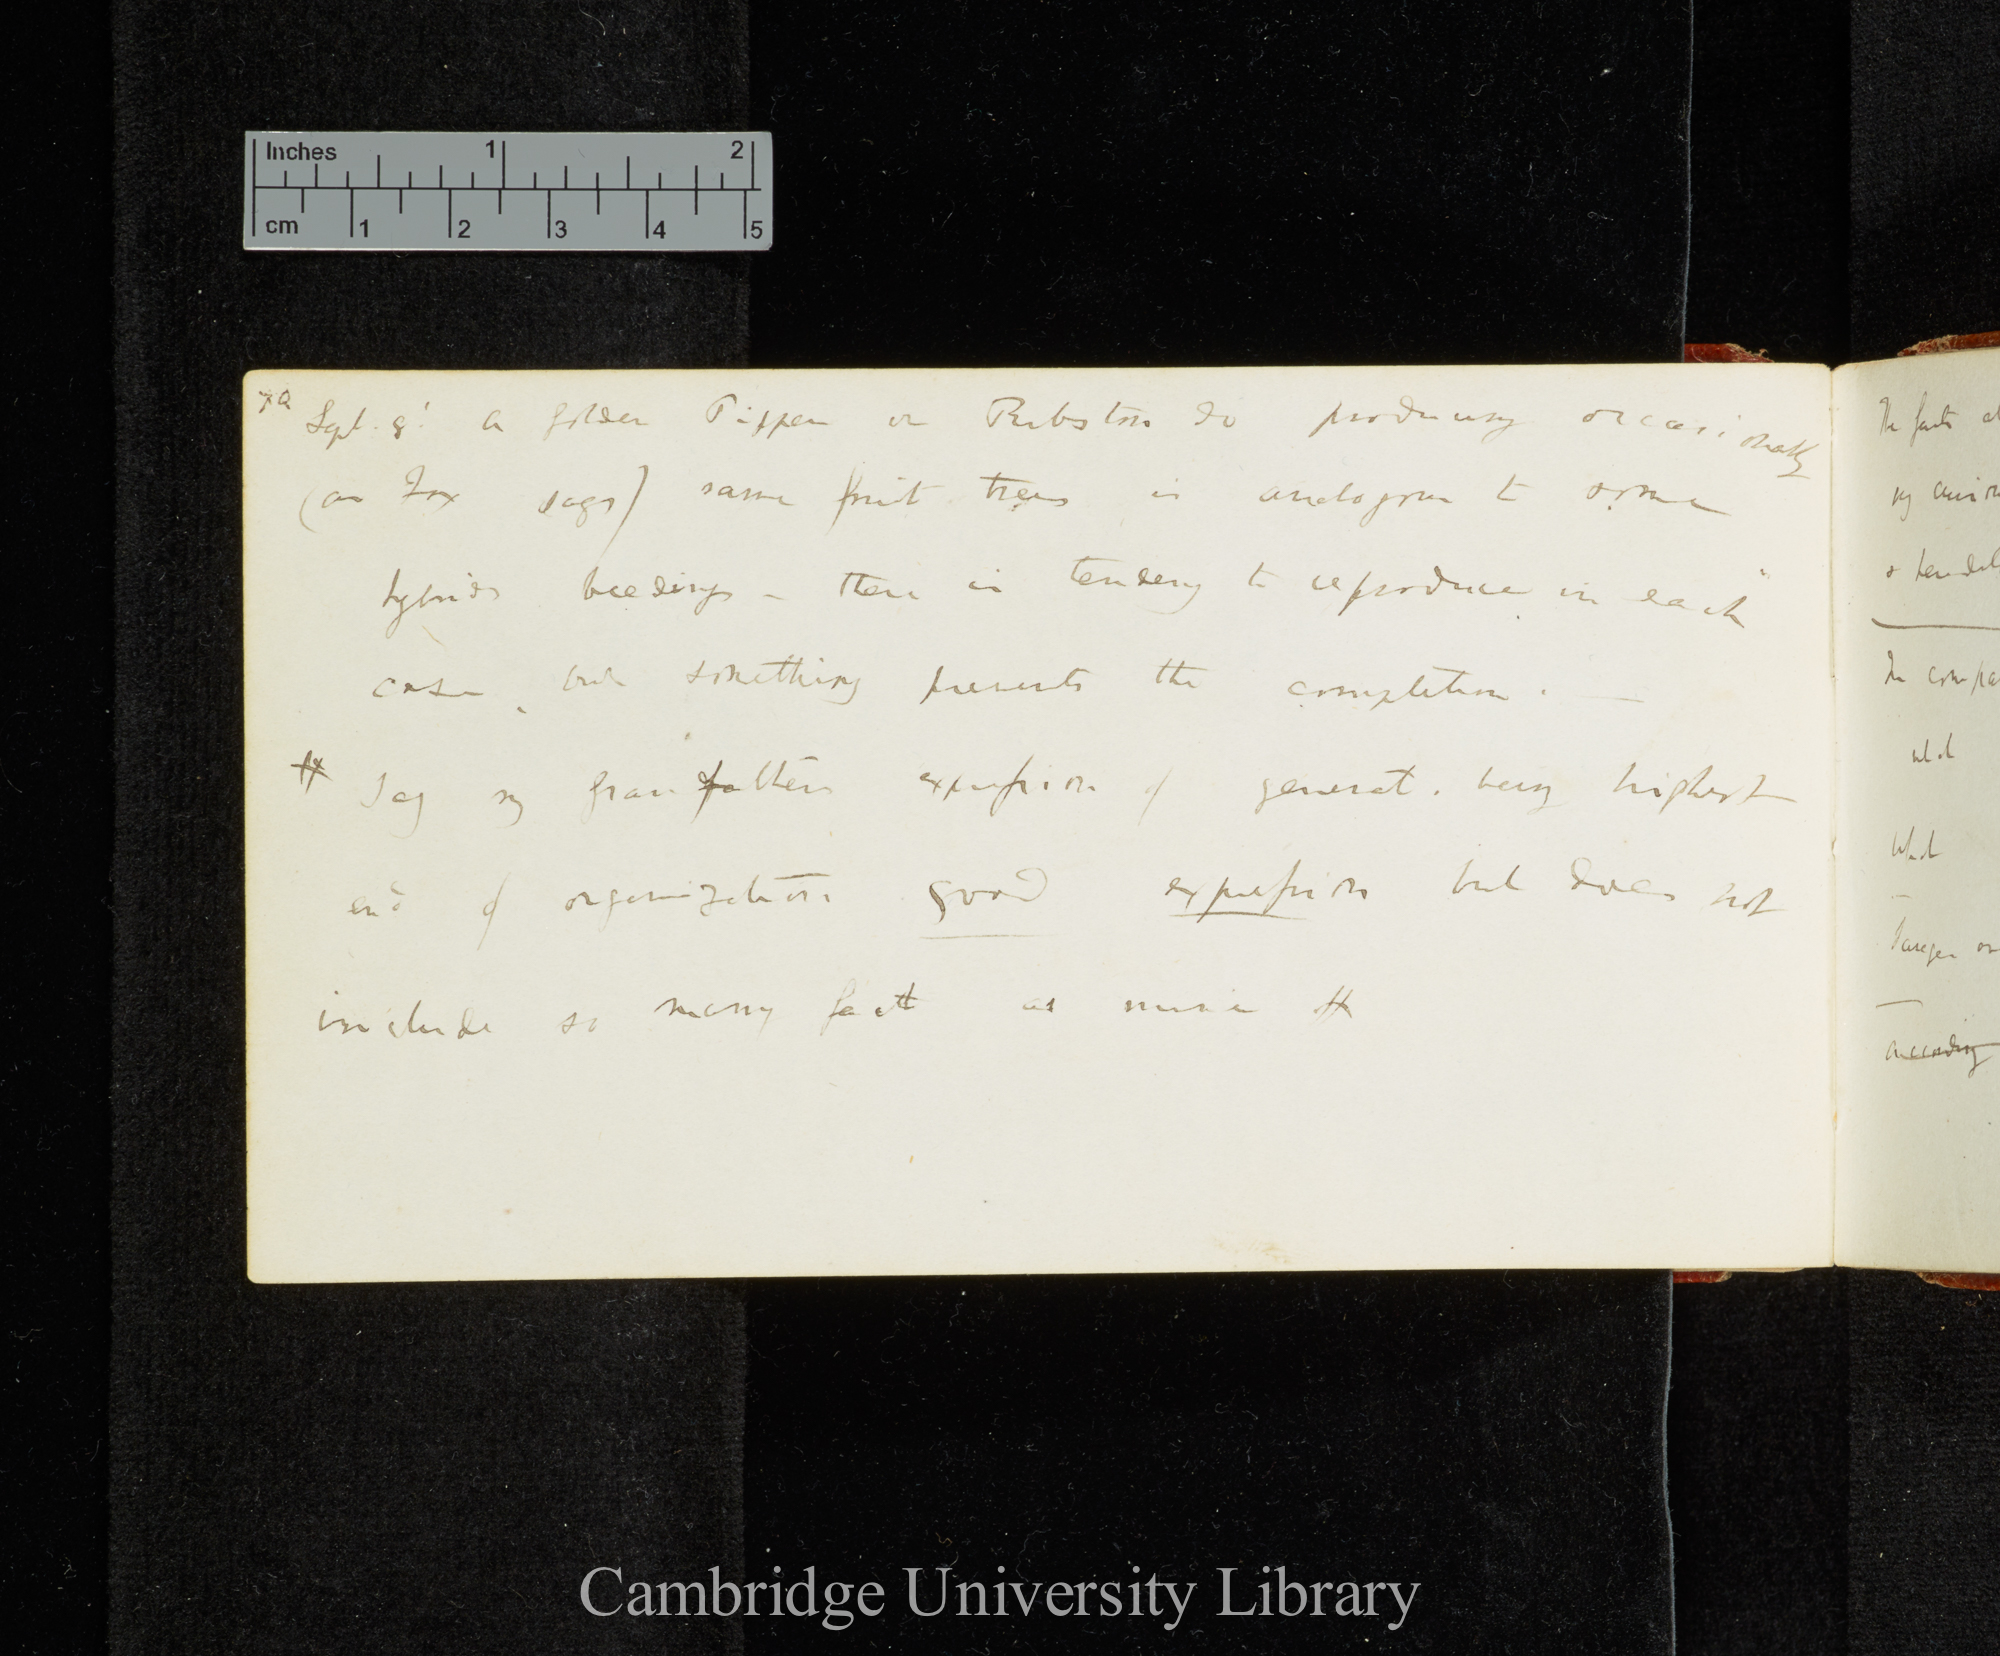 Inches 1 2
cm 1 2 3 4 5
Sept. 8! a golden Pippen or Ribston do producing occasionally
(as Fox says) same fruit trees is analogous to some
hybrids breedings — there is tendency to reproduce in each
case, but something prevents the completion. —
# Say my Grandfathers expression of generat. being highest
end of organization good expression but does not
include so many facts as mine #
The facts
my
In compa
what
What
according
Cambridge University Library